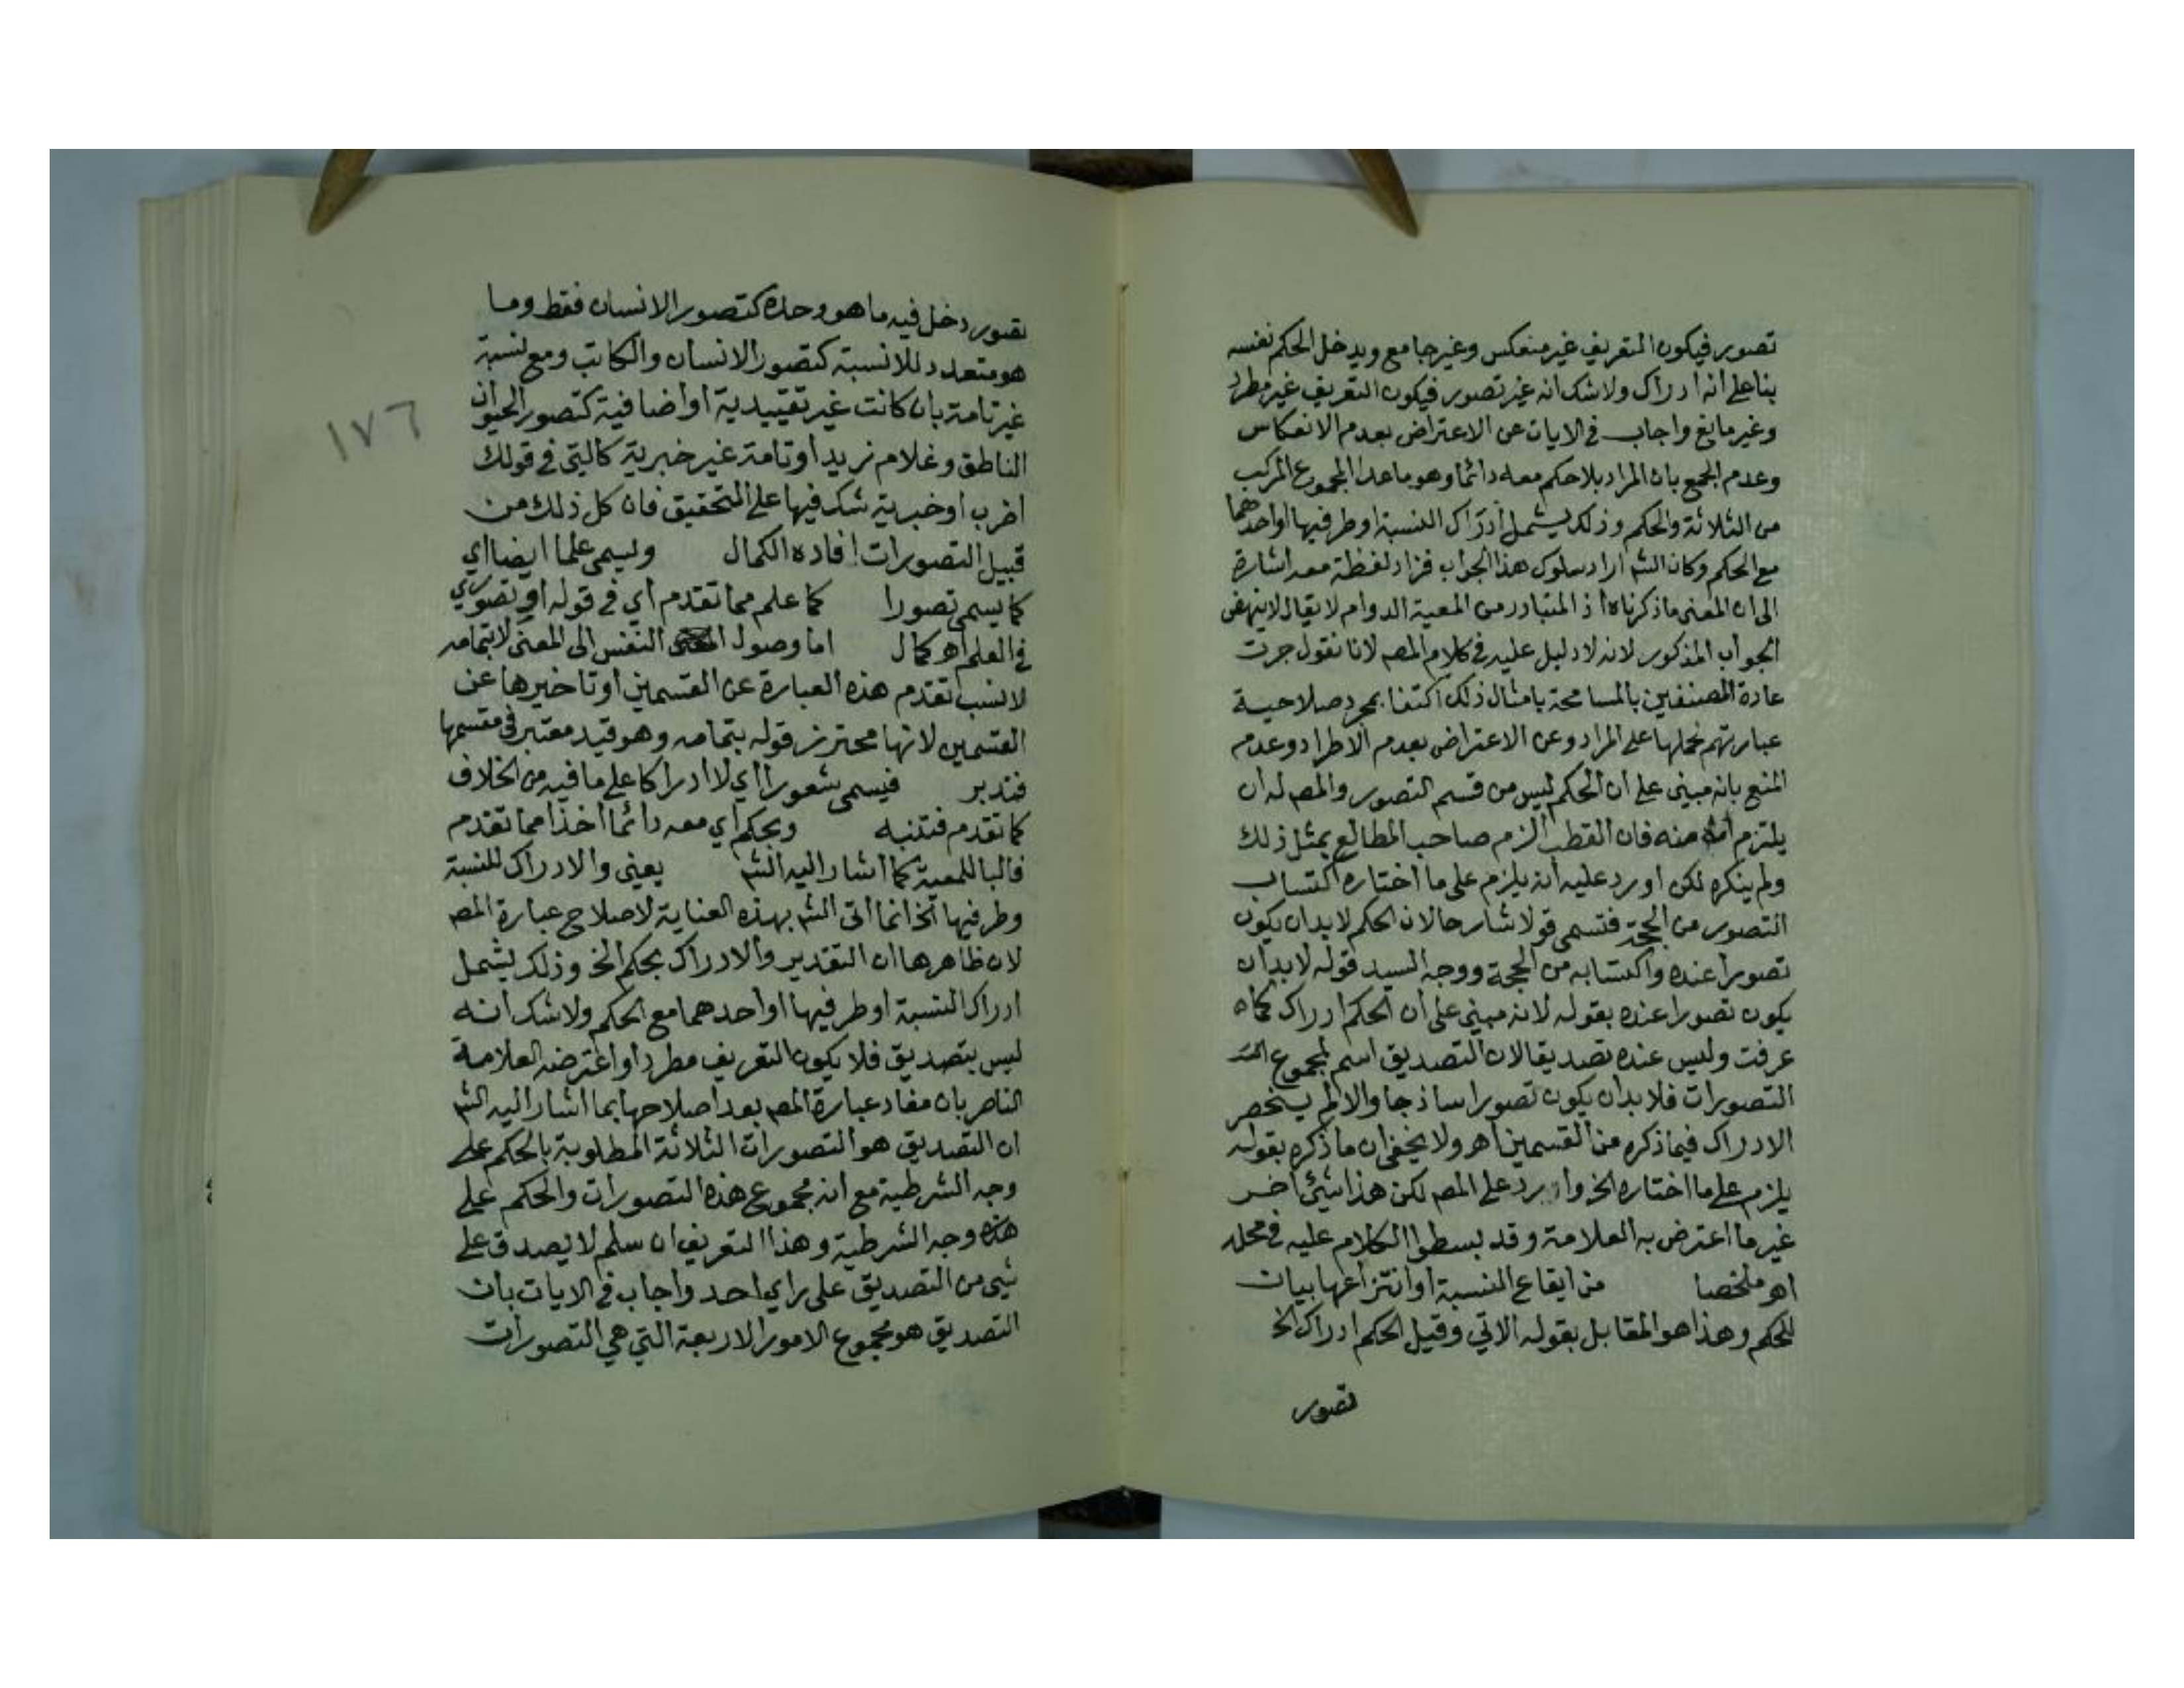 تصور فيكون التعريف غير منعكس وغير جامع ويدخل الحكم نفسه
بناعلى انه ادراك ولاشك انه غير تصور فيكون التعريف غير مطرد
وغير مانع واجاب في الايات عن الاعتراض بعدم الانعكاس
وعدم الجمع بان المراد بلاحكم معه دائما وهو ماعدا المجموع المركب
من الثلاثة والحكم وذلك يشمل ادراك النسبة او طرفيها او احدهما
مع الحكم وكان الشم اراد سلوك هذا الجواب فزاد لفظة معه اشارة
الى ان المعنى ماذكرناه اذ المتبادر من المعية الدوام لايقال لاينهض
الجواب المذكور لانه لادليل عليه في كلام المصم لانا نقول جرت
عادة المصنفين بالمسامحة بامثال ذلك اكتفا بمجرد صلاحية
عبارتهم لحملها على المراد وعن الاعتراض بعدم الاطراد وعدم
المنع بانه مبني على ان الحكم ليس من قسم التصور والمصم له ان
يلتزم انه منه فان القطب الزم صاحب المطالع بمثل ذلك
ولم ينكره لكن اورد عليه انه يلزم على ما اختاره اكتساب
التصور من الحجة فتسمى قولا شارحا لان الحكم لابد ان يكون
تصورا عنده واكتسابه من الحجة ووجه السيد قوله لابد ان
يكون تصورا عنده بقوله لانه مبني على ان الحكم ادراك كما
عرفت وليس عنده تصديقا لان التصديق اسم لمجموع
التصورات فلابد ان يكون تصورا ساذجا والالم ينحصر
الادراك فيما ذكره من القسمين اهـ ولايخفى ان ماذكره بقوله
يلزم على ما اختاره الخ وارد على المصم لكن هذا شيئ اخر
غير ما اعترض به العلامة وقد بسطوا الكلام عليه في محله
اهـ ملخصا من ايقاع النسبة او انتزاعها بيان
للحكم وهذا هو المقابل بقوله الاتي وقيل الحكم ادراك الخ
تصور
تصور دخل فيه ما هو وحده كتصور الانسان فقط وما
هو متعدد بلانسبة كتصور الانسان والكاتب ومع نسبة
غير تامة بان كانت غير تقييدية او اضافية كتصور الحيوان
الناطق وغلام زيد او تامة غير خبرية كالتي في قولك
اضرب او خبرية شك فيها على التحقيق فان كل ذلك من
قبيل التصورات افاده الكمال ويسمى علما ايضا اي
كما يسمى تصورا كما علم مما تقدم اي في قوله او تصوري
في العلم اهـ كمال اما وصول النفس الى المعنى لابتمامه
لانسب تقدم هذه العبارة عن القسمين او تاخيرها عن
القسمين لانها محترز قوله بتمامه وهو قيد معتبر في مقسمها
فتدبر فيسمى شعورا اي لا ادراكا على ما فيه من الخلاف
كما تقدم فتنبه وبحكم اي معه دائما اخذا مما تقدم
فالبا للمعية كما اشار اليه الشم يعني والادراك للنسبة
وطرفيها الخ انما اتى الشم بهذه العناية لاصلاح عبارة المصم
لان ظاهرها ان التقدير والادراك بحكم الخ وذلك يشمل
ادراك النسبة او طرفيها او احدهما مع الحكم ولاشك انه
ليس بتصديق فلا يكون التعريف مطردا واعترضه العلامة
الناصر بان مفاد عبارة المصم بعد اصلاحها بما اشار اليه الشم
ان التصديق هو التصورات الثلاثة المطلوبة بالحكم على
وجه الشرطية مع انه مجموع هذه التصورات والحكم على
هذه وجه الشرطية وهذا التعريف ان سلم لايصدق على
شي من التصديق على راي احد واجاب في الايات بان
التصديق هو مجموع الامور الاربعة التي هي التصورات
١٧٦